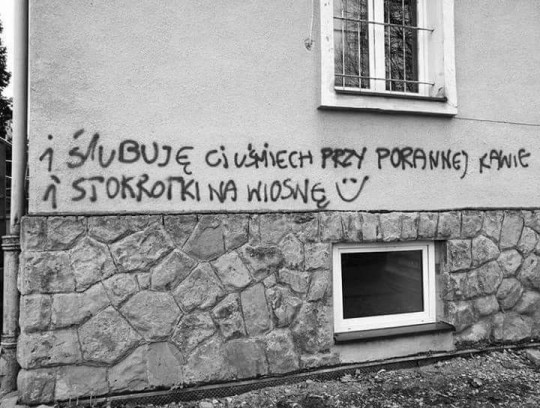 i ŚlUBUJĘ Ci UŚMIECH PRZY PORANNEJ KAWIE
i STOKROTKI NA WIOSNĘ :)